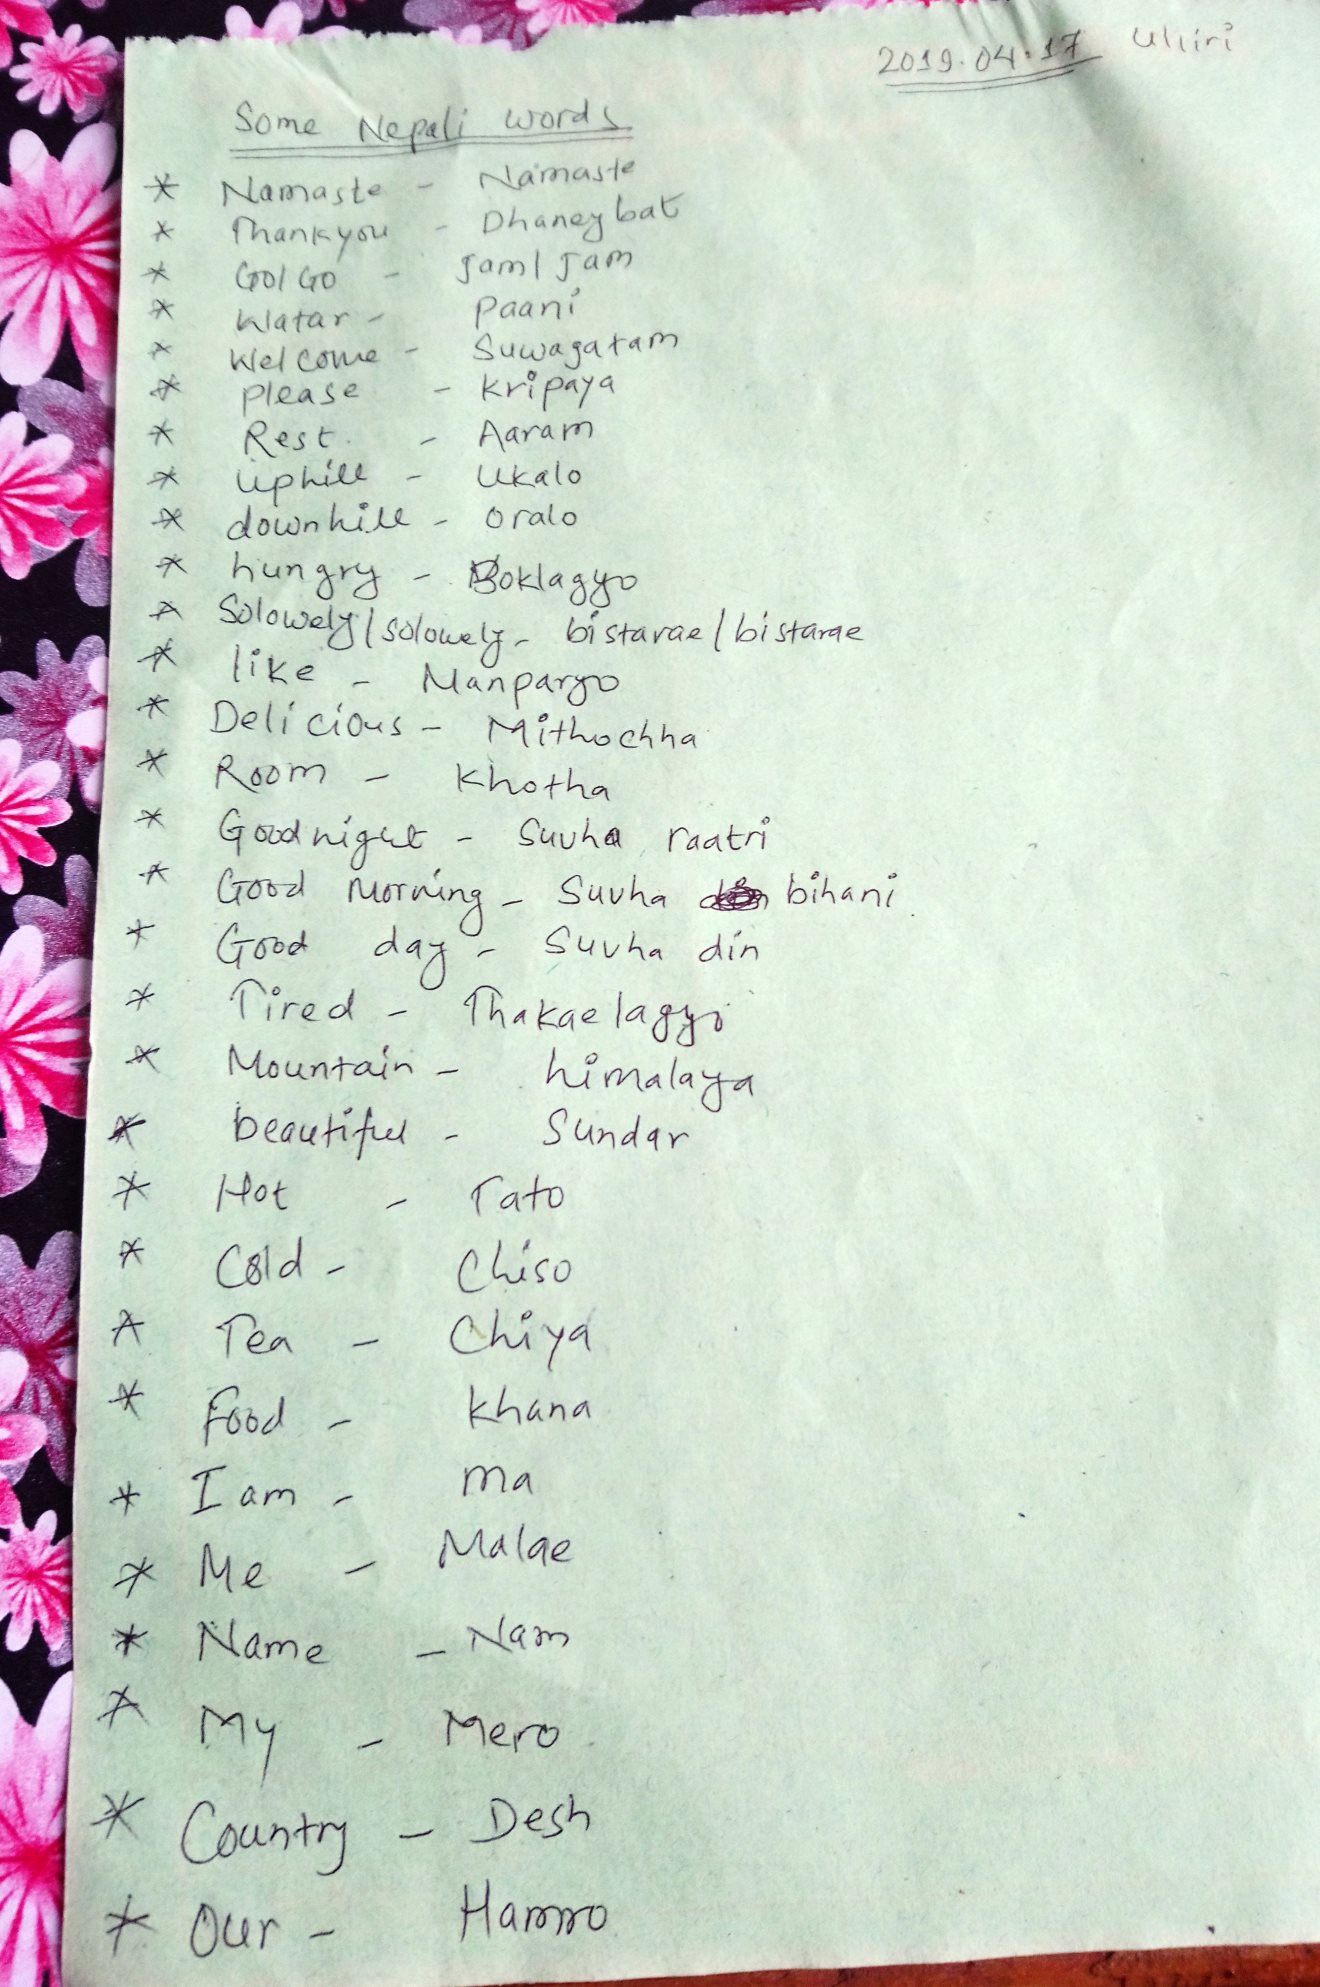 2019.04.17 Ulliri
Some Nepali words
* Namaste - Namaste
* Thankyou - Dhaneybat
* Go/Go - Jam/Jam
* Watar - Paani
* Welcome - Suwagatam
* please - Kripaya
* Rest. - Aaram
* uphill - Ukalo
* downhill - oralo
* hungry - Boklagyo
* Solowely/solowely - bistarae/bistarae
* like - Manparyo
* Delicious - Mithochha
* Room - Khotha
* Goodnight - Suvha raatri
* Good Morning - Suvha bihani.
* Good day - Suvha din
* Tired - Thakaelagyo
* Mountain - himalaya
* beautiful - Sundar
* Hot - Tato
* Cold - Chiso
* Tea - Chiya
* Food - Khana
* I am - Ma
* Me - Malae
* Name - Nam
* My - Mero
* Country - Desh
* Our - Hamro